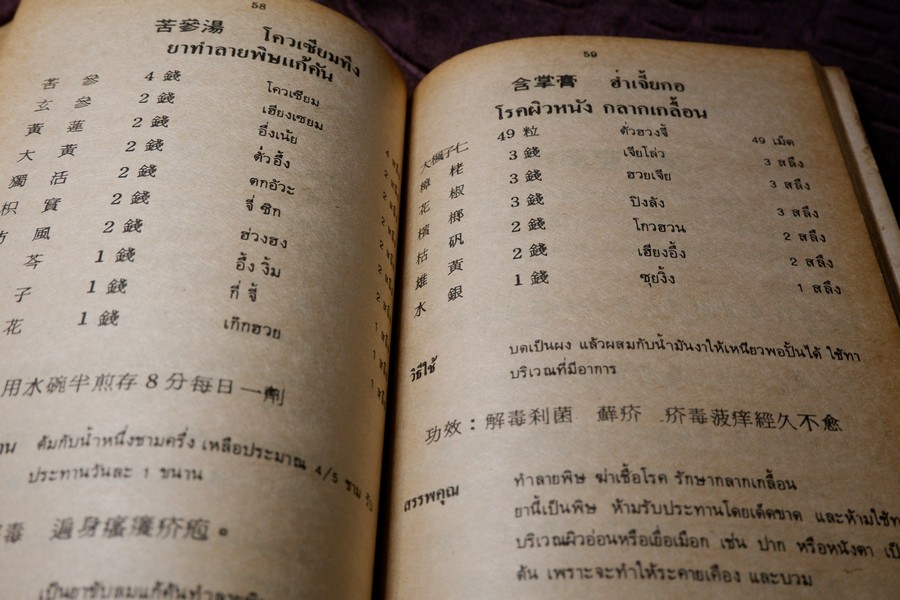 58
苦參湯 โควเซียมทึง
ยาทำลายพิษแก้คัน
苦 參 4 錢 โควเซียม
玄 參 2 錢 เฮียงเซยม
黃 蓮 2 錢 อึ่งเน้ย
大 黃 2 錢 ตั่วอึ้ง
獨 活 2 錢 ตกอัวะ
枳 實 2 錢 จี๋ ซิก
防 風 2 錢 ฮ่วงฮง
芩 1 錢 อึ้ง งิ้ม
子 1 錢 กี่ จี้
花 1 錢 เก็กฮวย
用水碗半煎存8分每日一劑
ต้มกับน้ำหนึ่งชามครึ่ง เหลือประมาณ 4/5 ชาม รับ
ประทานวันละ 1 ขนาน
毒 遍身瘙癢疥皰。
เป็นยาขับลมแก้คันทำลายพิษ
59
含掌膏 ฮ่ำเจี้ยกอ
โรคผิวหนัง กลากเกลื้อน
大楓子仁 49 粒 ตั่วฮวงจี้ 49 เม็ด
樟 栳 3 錢 เจียโล่ว 3 สลึง
花 椒 3 錢 ฮวยเจีย 3 สลึง
檳 榔 3 錢 ปิงลัง 3 สลึง
枯 矾 2 錢 โกวฮวน 2 สลึง
雄 黃 2 錢 เฮียงอึ้ง 2 สลึง
水 銀 1 錢 ซุยงิ้ง 1 สลึง
วิธีใช้ บดเป็นผง แล้วผสมกับน้ำมันงาให้เหนียวพอปั้นได้ ใช้ทา
บริเวณที่มีอาการ
功效：解毒刹菌 蘚疥 疥毒菠痒經久不愈
สรรพคุณ ทำลายพิษ ฆ่าเชื้อโรค รักษากลากเกลื้อน
ยานี้เป็นพิษ ห้ามรับประทานโดยเด็ดขาด และห้ามใช้ท
บริเวณผิวอ่อนหรือเยื่อเมือก เช่น ปาก หรือหนังตา เป็
ต้น เพราะจะทำให้ระคายเคือง และบวม